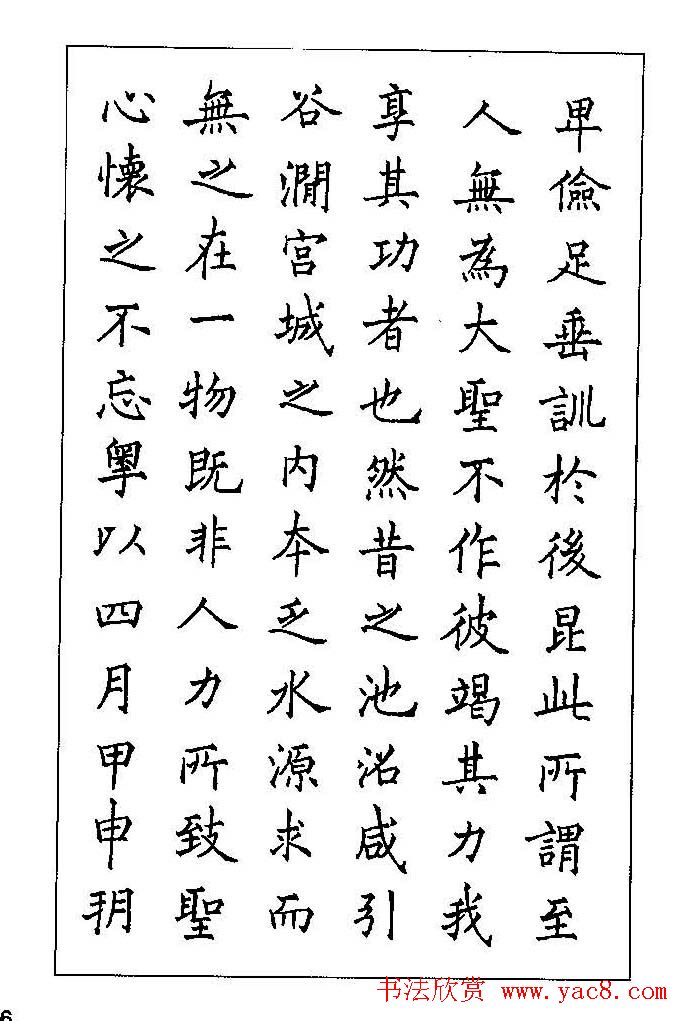 卑儉足垂訓於後昆此所謂至
人無為大聖不作彼竭其力我
享其功者也然昔之池沼咸引
谷澗宮城之內本乏水源求而
無之在一物既非人力所致聖
心懷之不忘粤以四月甲申朔
书法欣赏 www.yac8.com
6